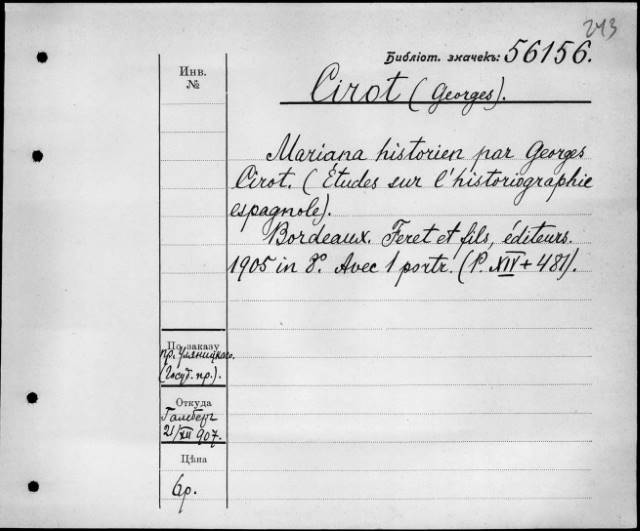 243
Библіот. значекъ: 56156.
Инв.
№
Cirot (Georges).
Mariana historien par Georges
Cirot. (Études sur l'historiographie
espagnole).
Bordeaux. Feret et fils, éditeurs.
1905 in 8°. Avec 1 portr. (P. XIV + 481).
По заказу
пр. Уляницкаго.
(Госуд. пр.).
Откуда
21/XII 907.
Цѣна
6р.